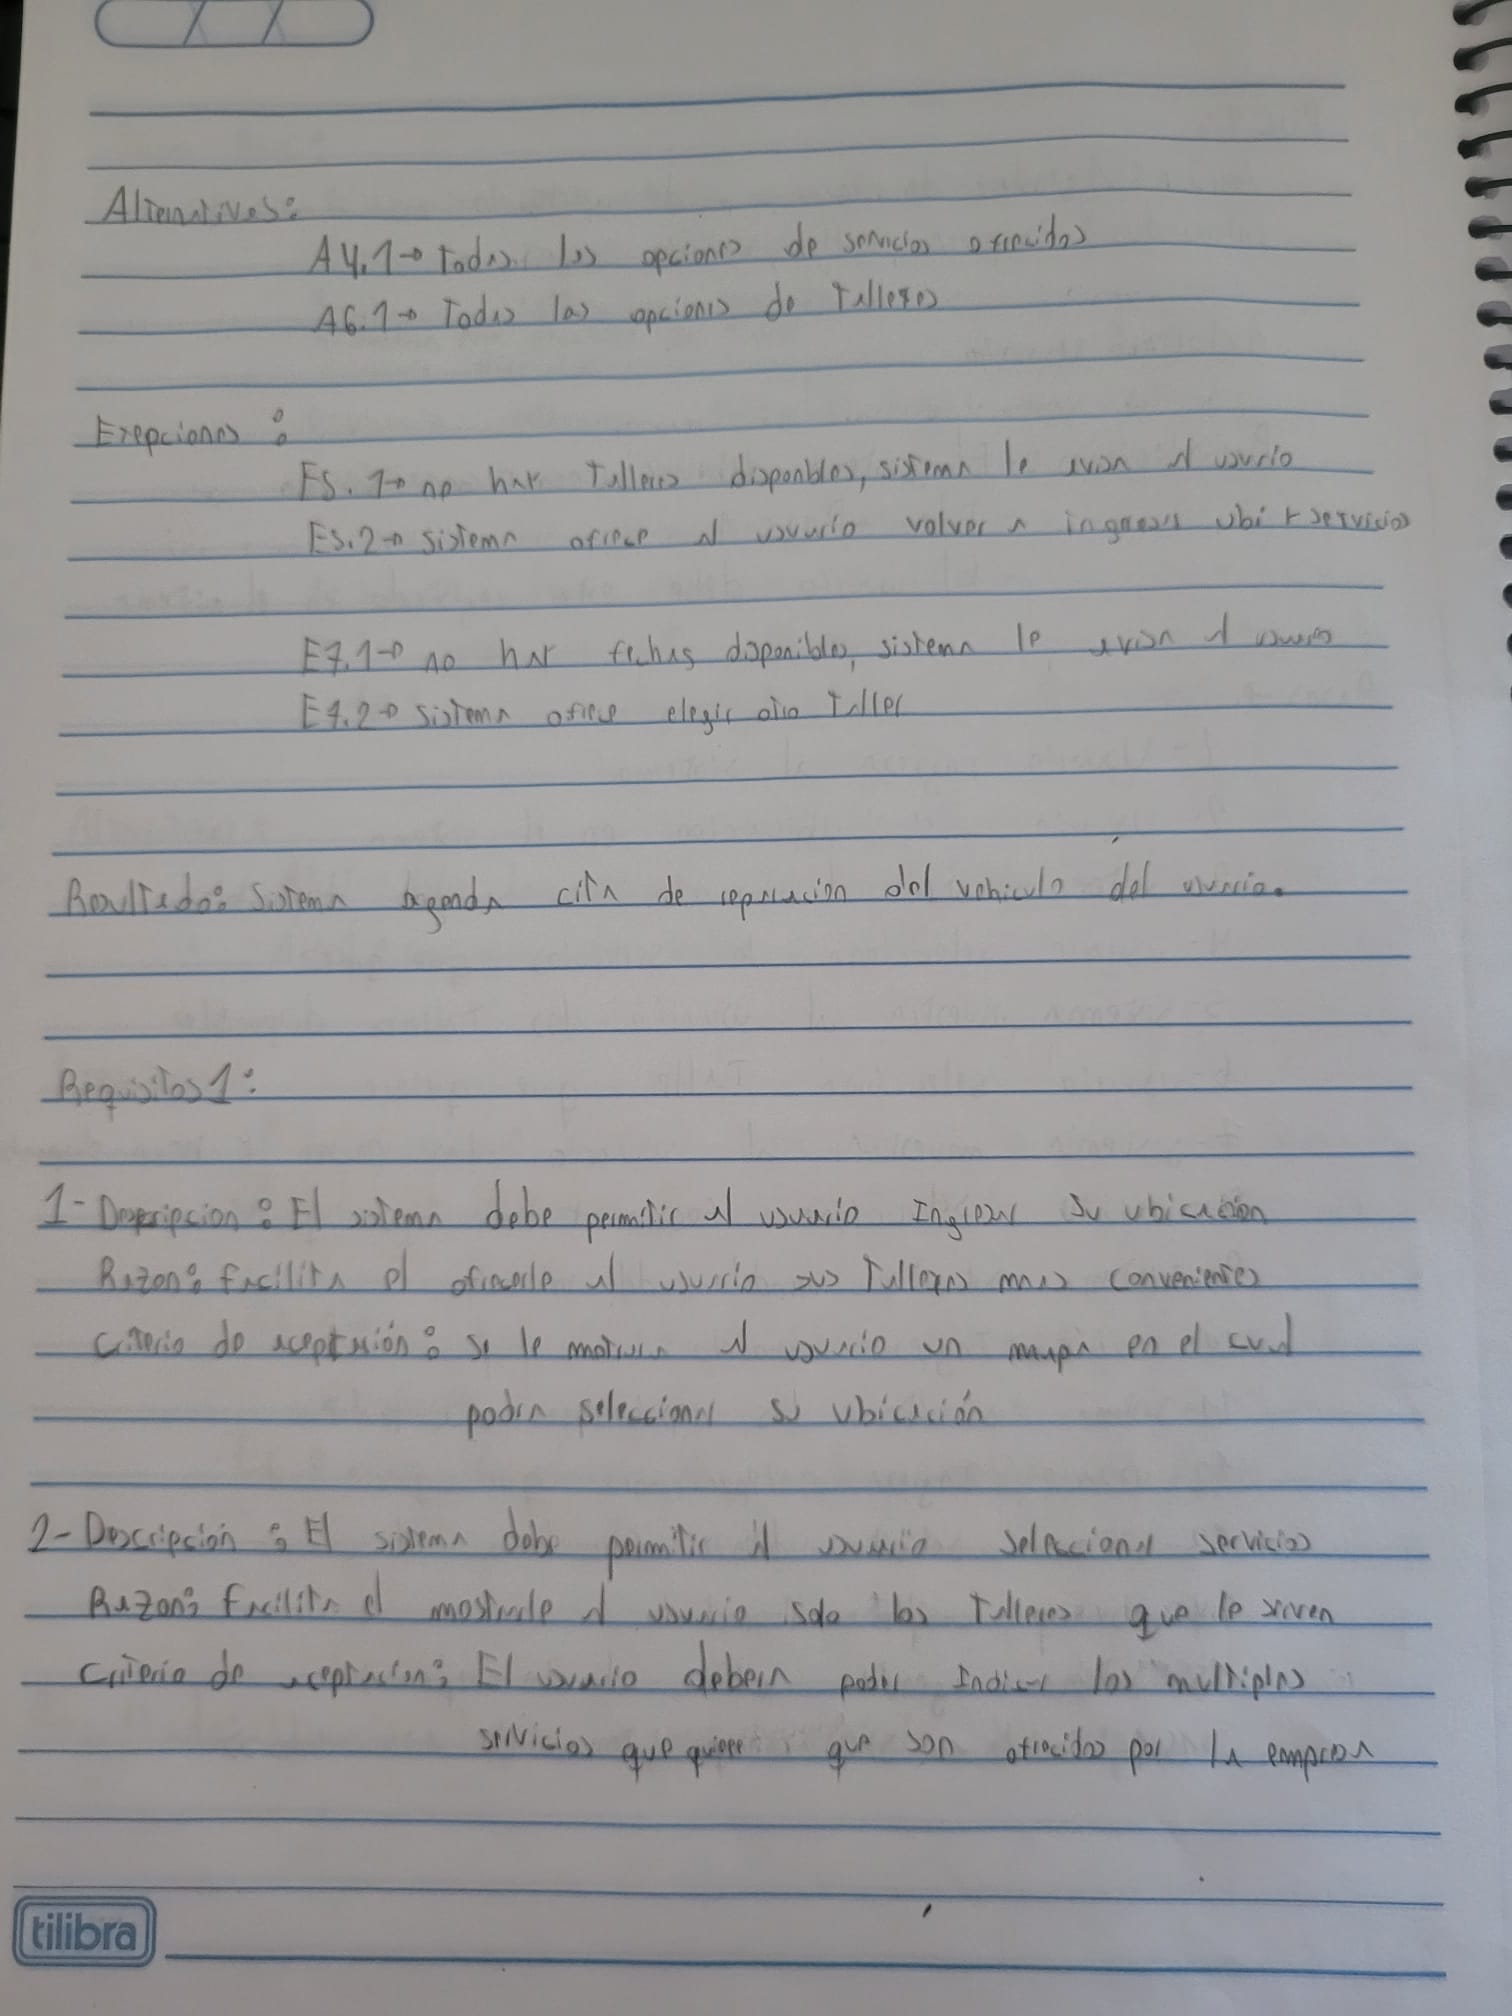 Alternativas:
A4.1→ Todas las opciones de servicios ofrecidos
A6.1→ Todas las opciones de Talleres
Exepciones:
E5.1→ no hay Talleres disponbles, sistema le avisa al usuario
E5.2→ sistema ofrece al usuario volver a ingresar ubi y servicios
E7.1→ no hay fechas disponibles, sistema le avisa al usuario
E7.2→ sistema ofrece elegir otro Taller
Resultado: Sistema agenda cita de reparacion del vehiculo del usuario.
Requisitos 1:
1- Descripcion: El sistema debe permitir al usuario Ingresar su ubicación
Razon: facilita el ofrecerle al usuario sus Talleres mas convenientes
Criterio de aceptación: se le mostrara al usuario un mapa en el cual
podra seleccionar su ubicación
2- Descripción: El sistema debe permitir al usuario seleccionar servicios
Razon: facilita el mostrarle al usuario solo los Talleres que le sirven
Criterio de aceptacion: El usuario debera poder Indicar los multiples
servicios que quiere que son ofrecidos por la empresa
tilibra